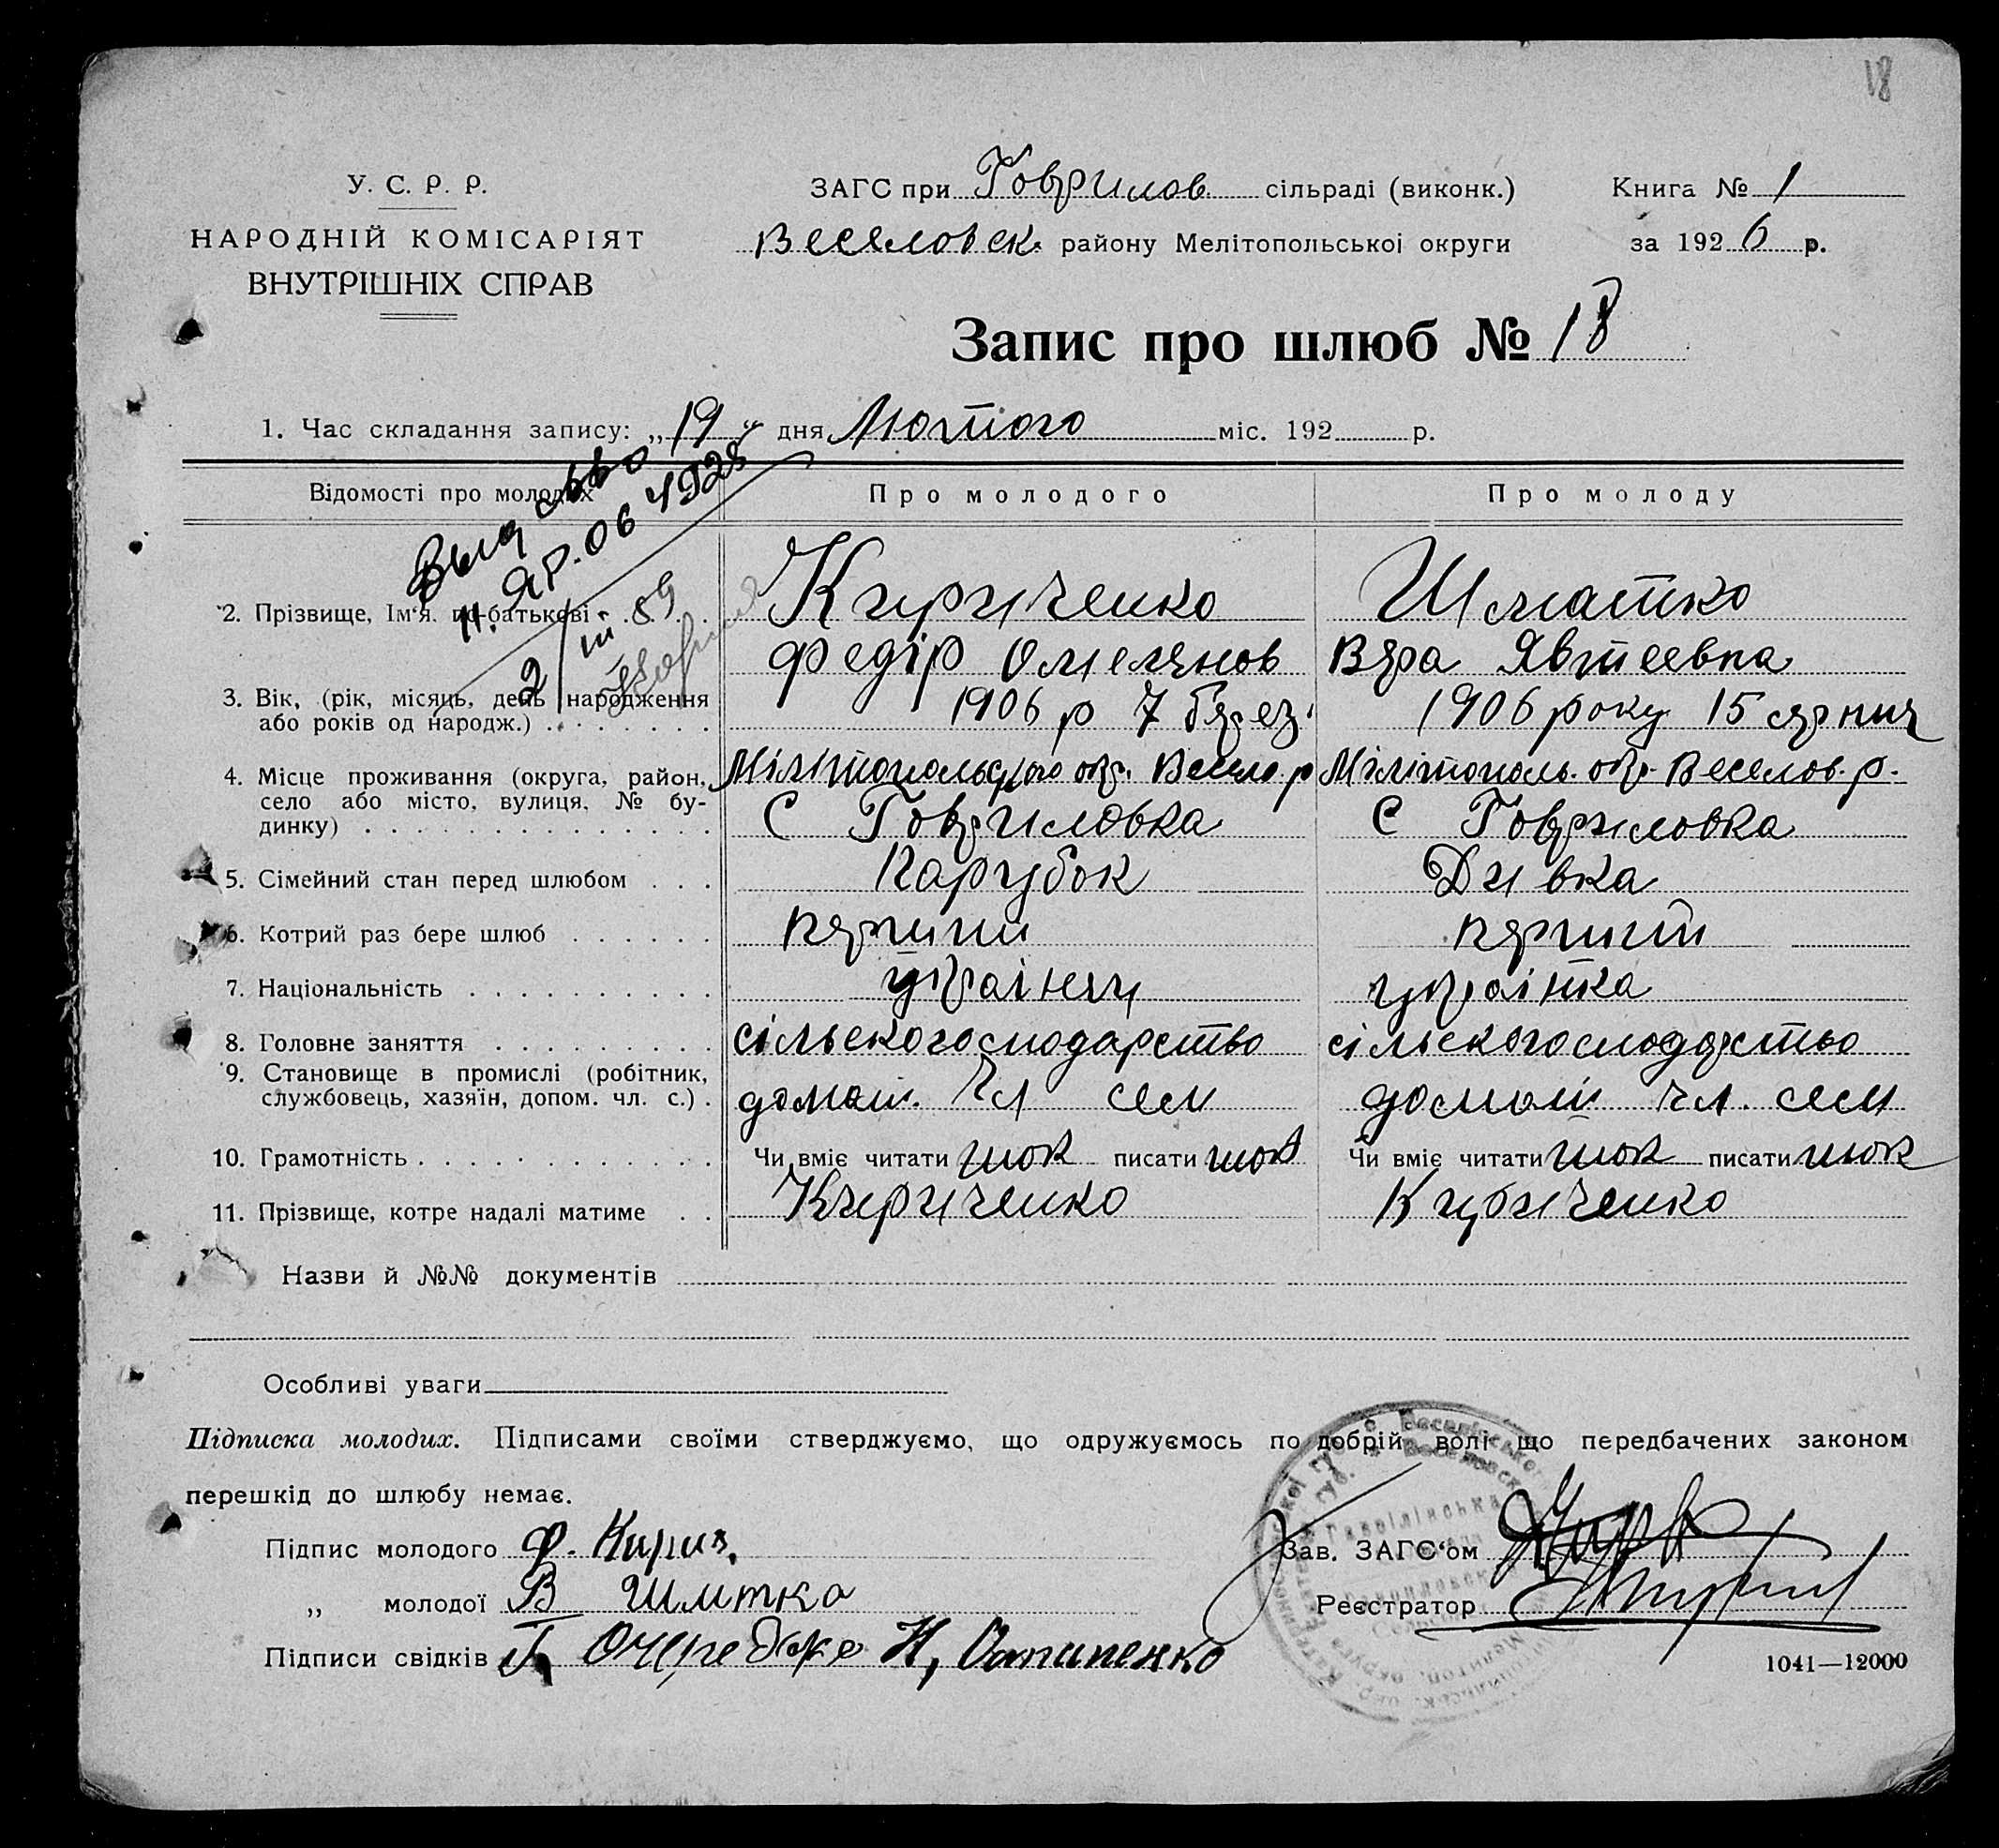 18
У. С. Р. Р.
НАРОДНІЙ КОМІСАРІЯТ
ВНУТРІШНІХ СПРАВ
ЗАГС при Говрилов. сільраді (виконк.)
Веселовск. району Мелітопольської округи
Книга № 1
за 1926 р.
Запис про шлюб № 18
1. Час складання запису: „19“ дня Лютого міс. 192 р.
Відомості про молодих
Про молодого
Про молоду
2. Прізвище, Ім'я. по-батькові
Кириченко
Федір Омелянов
Шматко
Вяра Явтеевна
3. Вік, (рік, місяць, день народження
або років од народж.)
1906 р 7 бярез.
1906 року 15 сярпня
4. Місце проживання (округа, район,
село або місто, вулиця, № бу-
динку)
Мілітопольского окр. Весело. р
С Говриловка
Мілітополь. окр. Веселов. р.
С Говриловка
5. Сімейний стан перед шлюбом
Парубок
Дивка
6. Котрий раз бере шлюб
7. Національність
украінец
украінка
8. Головне заняття
сільскогосподарство
сільскогосподярство
9. Становище в промислі (робітник,
службовець, хазяїн, допом. чл. с.)
домаш. чл сем
домаш чл. сем
10. Грамотність
Чи вміє читати писати
Чи вміє читати писати
11. Прізвище, котре надалі матиме
Кириченко
Кириченко
Назви й №№ документів
Особливі уваги
Підписка молодих. Підписами своїми стверджуємо, що одружуємось по добрій волі що передбачених законом
перешкід до шлюбу немає.
Підпис молодого Ф. Кирич.
„ молодої В Шмтка
Підписи свідків Очередже Н, Остапенко
Зав. ЗАГС'ом
Реєстратор
1041—12000